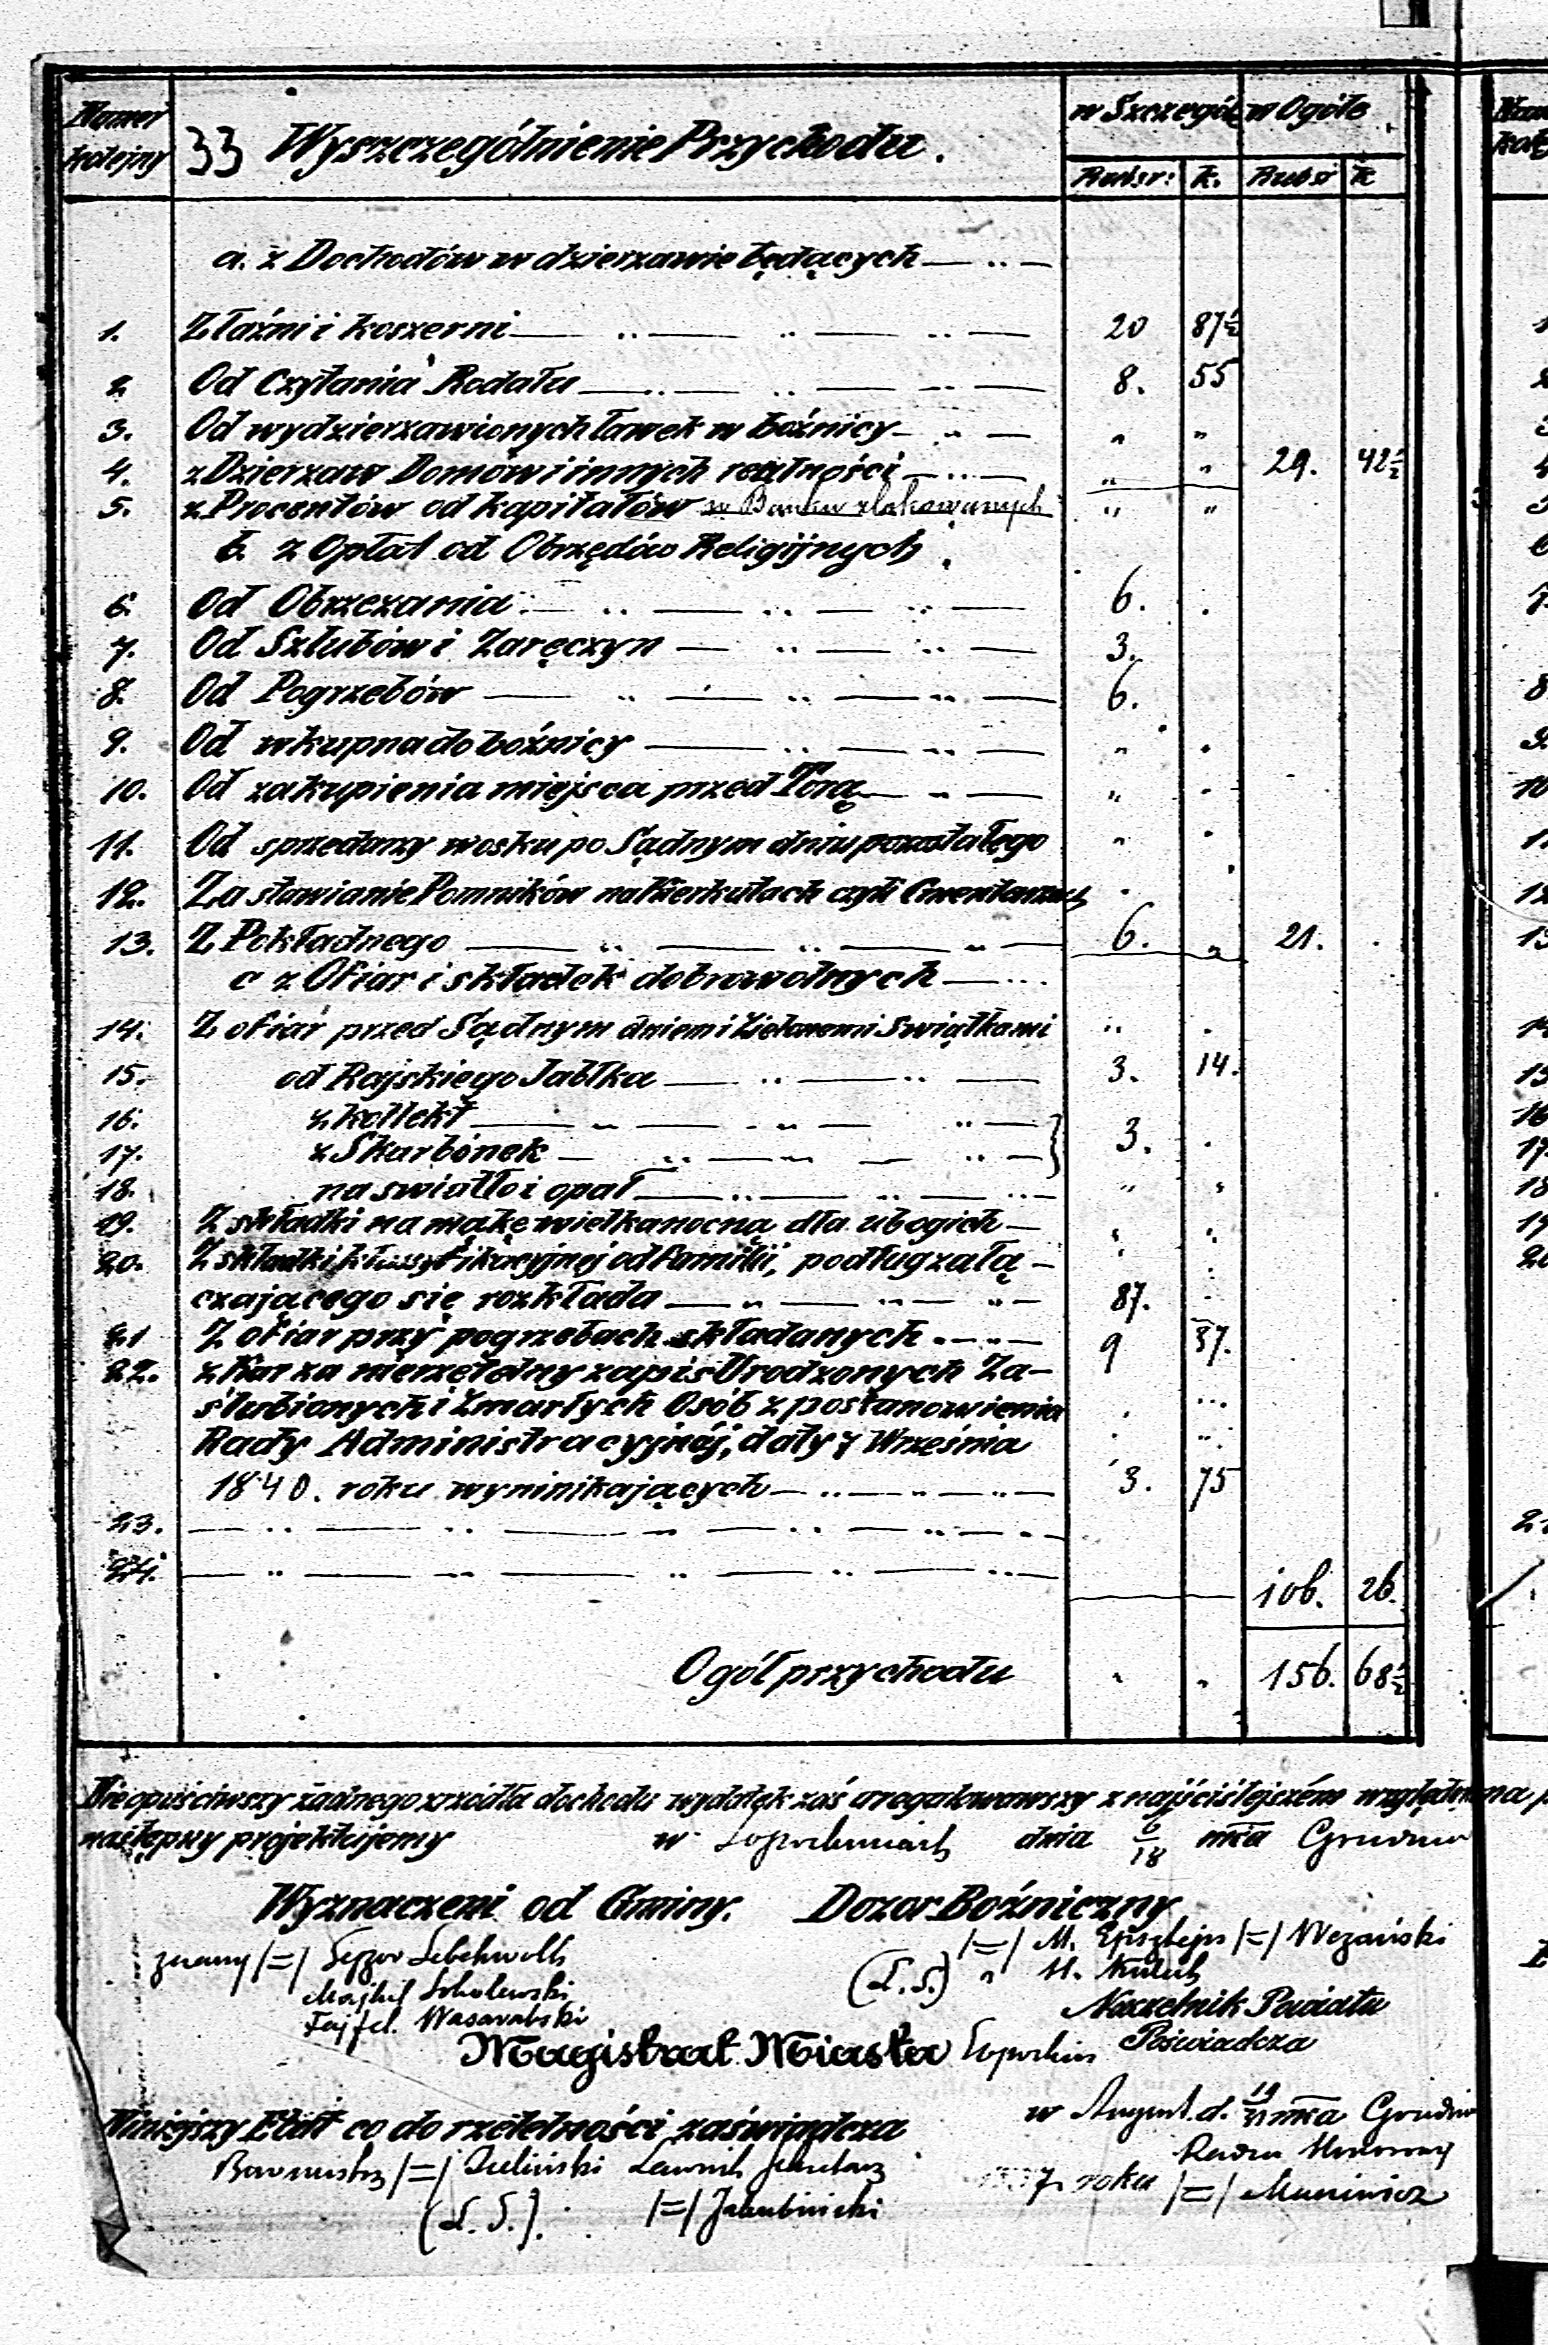 Numer kolejny 33 Wyszczególnienie Przychodu. w Szczególe w Ogóle
Rubsr: k. Rubsr k
a. z Dochodów w dzierzawie będących — .. —
1. Z łaźni i koszerni — .. — .. — .. — 20 87½
2 Od Czytania Rodału — .. — .. — .. — 8. 55
3. Od wydzierzawionych ławek w bóźnicy — „ — „ „
4. z Dzierzaw Domów i innych realności — .. — „ „ 29. 42½
5. z Procentów od kapitałów w Banku ulokowanych „ „
b. z Opłat od Obrzędów Religijnych
6. Od Obrzezania — .. — .. — .. — 6. .
7. Od Szlubów i Zaręczyn — .. — .. — 3.
8. Od Pogrzebów — .. — .. — .. — 6.
9. Od wkupna do bóźnicy — .. — .. — „ .
10. Od zakupienia miejsca przed Torą — „ — „ .
11. Od sprzedazy wosku po Sądnym dniu pozostałego „ .
12. Za stawianie Pomników na Kierkutach czyli Cmentarzu .
13. Z Pokładnego — .. — .. — „ — 6. „ 21. .
c z Ofiar i składek dobrowolnych — ...
14. Z ofiar przed Sądnym dniem i Zielonemi Swiątkami „ .
15. od Rajskiego Jabłka — .. — .. — 3. 14.
16. z kollekt — „ — „ — .. —
17. z Skarbónek — .. — „ — .. — } 3. .
18. na swiatło i opał — .. — .. — .. — „ „
19. Z składki na mąkę wielkanocną dla ubogich — „ „
20. Z składki klassyfikacyjnej od familii, podług załą-
czającego się rozkłada — „ — „ — „ — 87. .
21 Z ofiar przy pogrzebach składanych — „ — 9 37.
22. z Kar za nierzetelny zapis Urodzonych Za-
ślubionych i Zmarłych Osób z postanowienia
Rady Administracyjnej, daty 7 Września
1840. roku wyninikających — .. — „ — „ — 3. 75
23. — .. — .. — „ — .. — .. —
24. — .. — „ — .. — .. — .. —
106. 26.
Ogół przychodu „ „ 156. 68½
Nieopuściwszy żadnego źrzódła dochodu wydatek zaś uregulowawszy z najściślejszém względem na
następny projektujemy w Łopuchowiach dnia 6/18 mca Grudnia
Wyznaczeni od Gminy. Dozor Boźniczny
znany /=/ /=/ M. Epsztejn /=/
Sokolewski (L.S.) „
Fajfel Wasarabski Naczelnik Powiatu
Magistrat Miasta Poświadcza
w August. d. 19/31 mca Grudnia
Niniejszy Etat co do rzetelności zaświadcza
Burmistrz /=/ Zieliński Ławnik Radca Honorowy
7 roku /=/
(L.S.). /=/ Jakubinicki